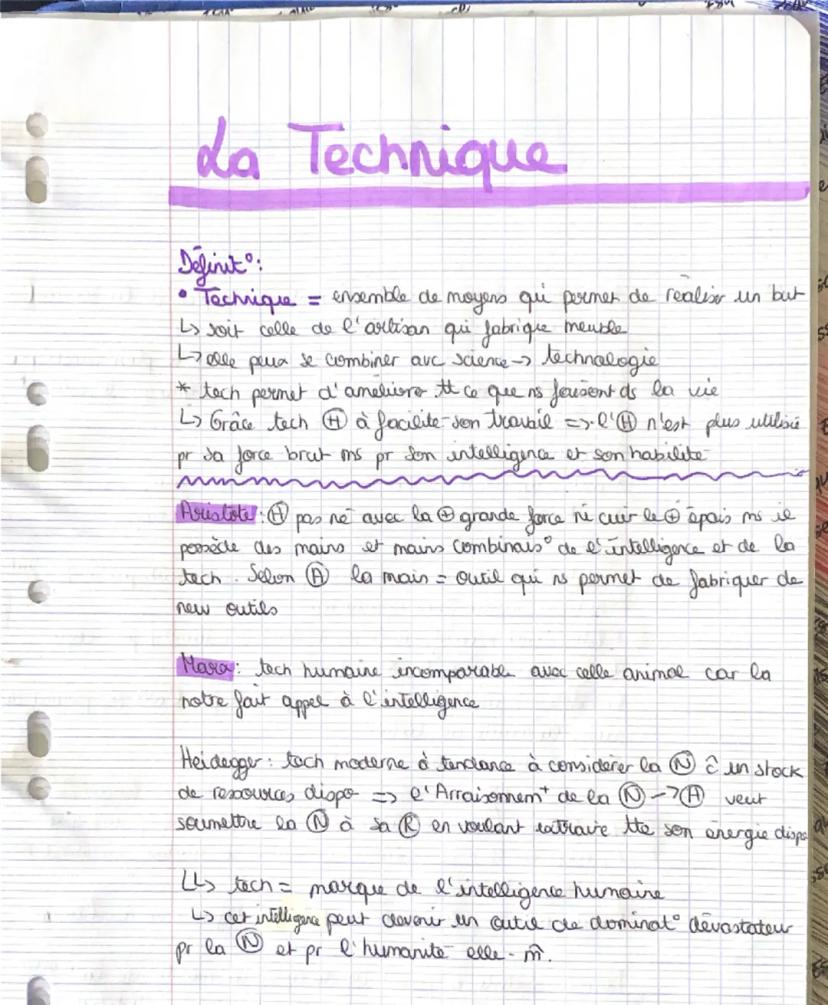 La Technique
Définit°:
• Technique = ensemble de moyens qui permet de réaliser un but
↳ soit celle de l'artisan qui fabrique meuble
↳ elle peux se combiner avc science → technologie
* tech permet d'améliore tt ce que ns faisont ds la vie
↳ Grâce tech Ⓗ à facilité son travail => l'Ⓗ n'est plus utilisé
pr sa force brut ms pr son intelligence et son habilité
Aristote : Ⓗ pas né avec la ⊕ grande force ni cuir le ⊕ épais ms il
possède des mains et mains combinais° de l'intelligence et de la
tech. Selon Ⓐ la main = outil qui ns permet de fabriquer de
new outils
Marx : tech humaine incomparable avec celle animal car la
notre fait appel à l'intelligence
Heidegger : tech moderne à tendance à considérer la Ⓝ ĉ un stock
de ressources dispo => l'Arraisonnemt de la Ⓝ → Ⓗ veut
soumettre la Ⓝ à sa Ⓡ en voulant extraire tte son énergie dispo
↳ tech = marque de l'intelligence humaine
↳ cet intelligence peut devenir un outil de dominat° dévastateur
pr la Ⓝ et pr l'humanité elle-m̂.